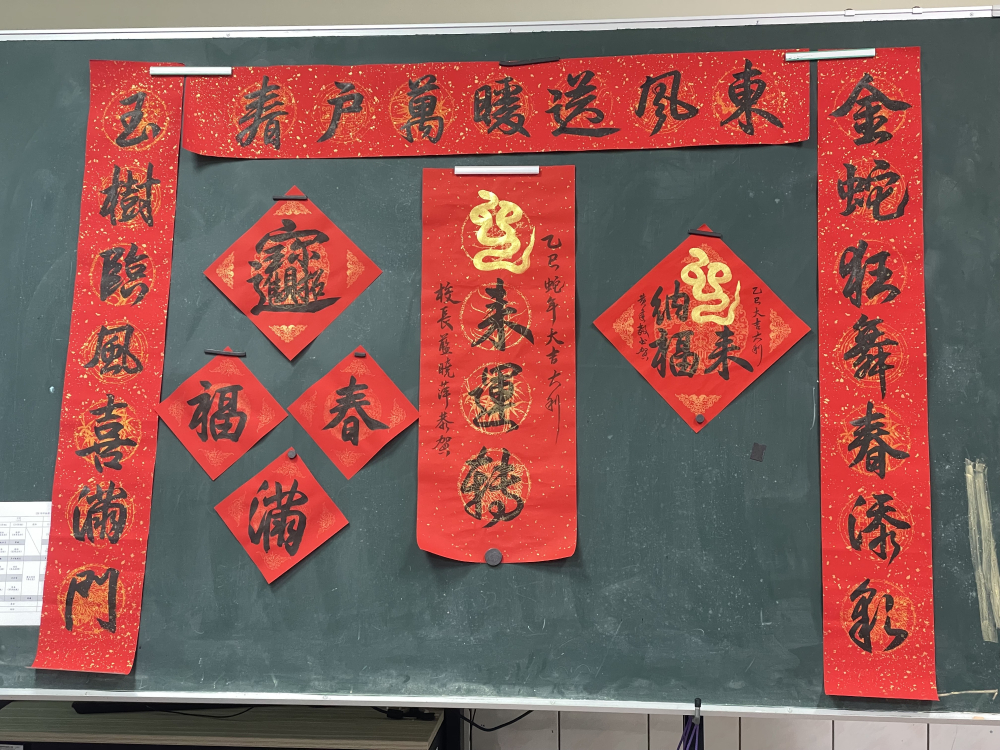 東風送暖萬戶春
金蛇狂舞春添彩
玉樹臨風喜滿門
招財進寶
春
福
滿
乙巳蛇年大吉大利
来運轉
校長藍曉萍恭賀
乙巳大吉大利
来
納福